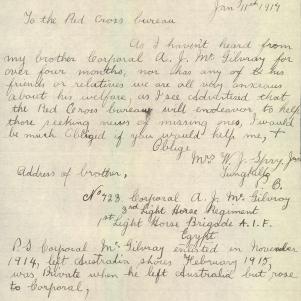 Jan 11th 1917
To the Red Cross bureau
As I haven't heard from
my brother Corporal A. J. McGilvray for
over four months, nor has any of his
friends or relatives we are all very anxious
about his welfare, as I see advertised that
the Red Cross bureau will endeavor to help
those seeking news of missing ones, I would
be much obliged if you would help me, &
Oblige
Mrs W. J. Spry
Address of brother,
No 723. Corporal A. J. McGilvray
3rd Light Horse Regiment
1st Light Horse Brigade A.I.F.
Egypt
P.S Corporal McGilvray enlisted in November
1914, left Australia shores February 1915,
was Private when he left Australia but rose
to Corporal,